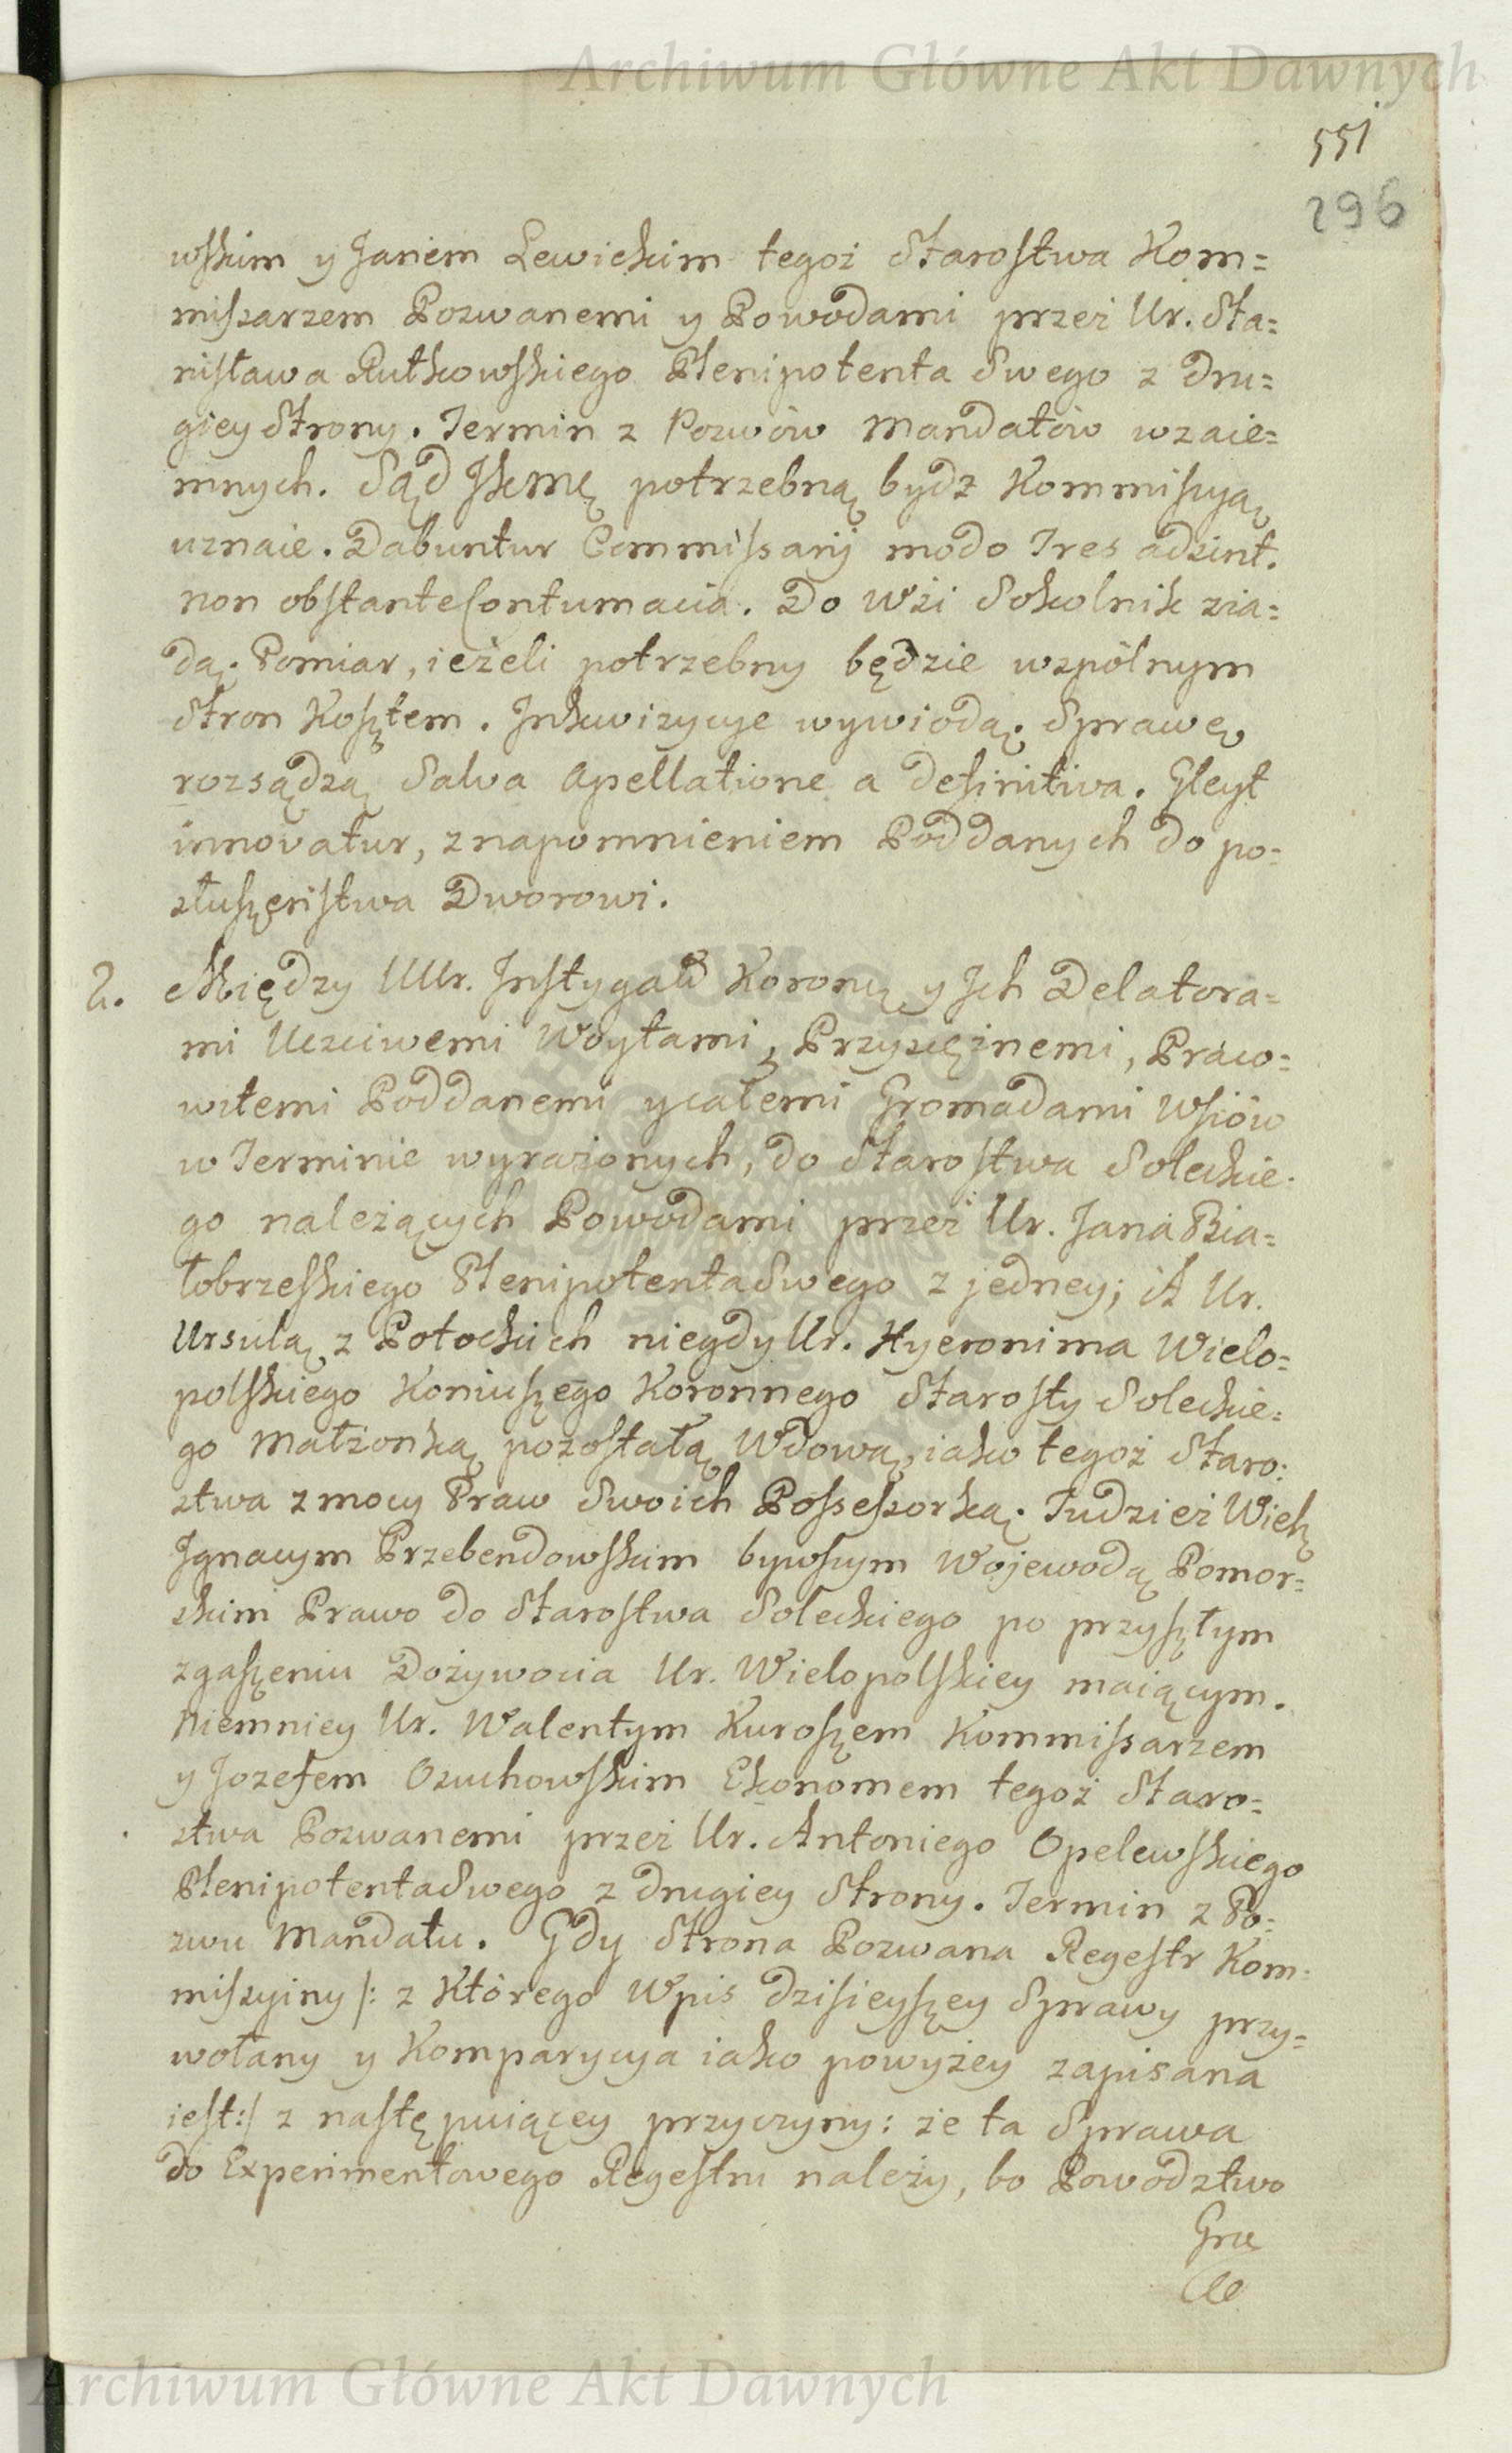 Archiwum Główne Akt Dawnych
551
296
wskim y Janem Lewickim tegoż Starostwa Kom=
missarzem Pozwanemi y Powodami przez Ur. Sta=
nisława Rutkowskiego Plenipotenta Swego z dru=
giey Strony. Termin z Pozwów Mandatów wzaie=
mnych. Sąd JKmę potrzebną bydź Kommissyą
uznaie. Dabuntur Commissarij modo Tres adsint.
non obstante Contumacia. Do Wsi Sokolnik zia=
dą. Pomiar, ieżeli potrzebny będzie wspólnym
Stron Kosztem. Inkwizycye wywiodą. Sprawę
rozsądzą Salva Apellatione a definitiva. Gleyt
innovatur, z napomnieniem Poddanych do po=
słuszeństwa Dworowi.
2. Między UUr. Instygatt Koronę y Ich Delatora=
mi Uczciwemi Woytami, Przysiężnemi, Praco=
witemi Poddanemi y całemi Gromadami Wsiów
w Terminie wyrażonych, do Starostwa Soleckie=
go należących Powodami przez Ur. Jana Bia=
łobrzeskiego Plenipotenta Swego z jedney; A Ur.
Ursulą z Potockich niegdy Ur. Hyeronima Wielo=
polskiego Koniuszego Koronnego Starosty Soleckie=
go Małżonką pozostałą Wdową, iako tegoż Staro=
stwa z mocy Praw Swoich Possessorką. Tudzież Wielę
Ignacym Przebendowskim bywszym Wojewodą Pomor=
skim Prawo do Starostwa Soleckiego po przyszłym
zgaszeniu Dożywocia Ur. Wielopolskiey maiącym.
Niemniey Ur. Walentym Kuroszem Kommissarzem
y Jozefem Ozuchowskim Ekonomem tegoż Staro=
stwa Pozwanemi przez Ur. Antoniego Opelewskiego
Plenipotenta Swego z drugiey Strony. Termin z Po=
zwu Mandatu. Gdy Strona Pozwana Regestr Kom=
missyiny /: z Którego Wpis dzisieyszey Sprawy przy=
wołany y Komparycya iako powyżey zapisana
iest :/ z nastę puiącey przyczyny: że ta Sprawa
do Experimentowego Regestru należy, bo Powodztwo
Archiwum Główne Akt Dawnych